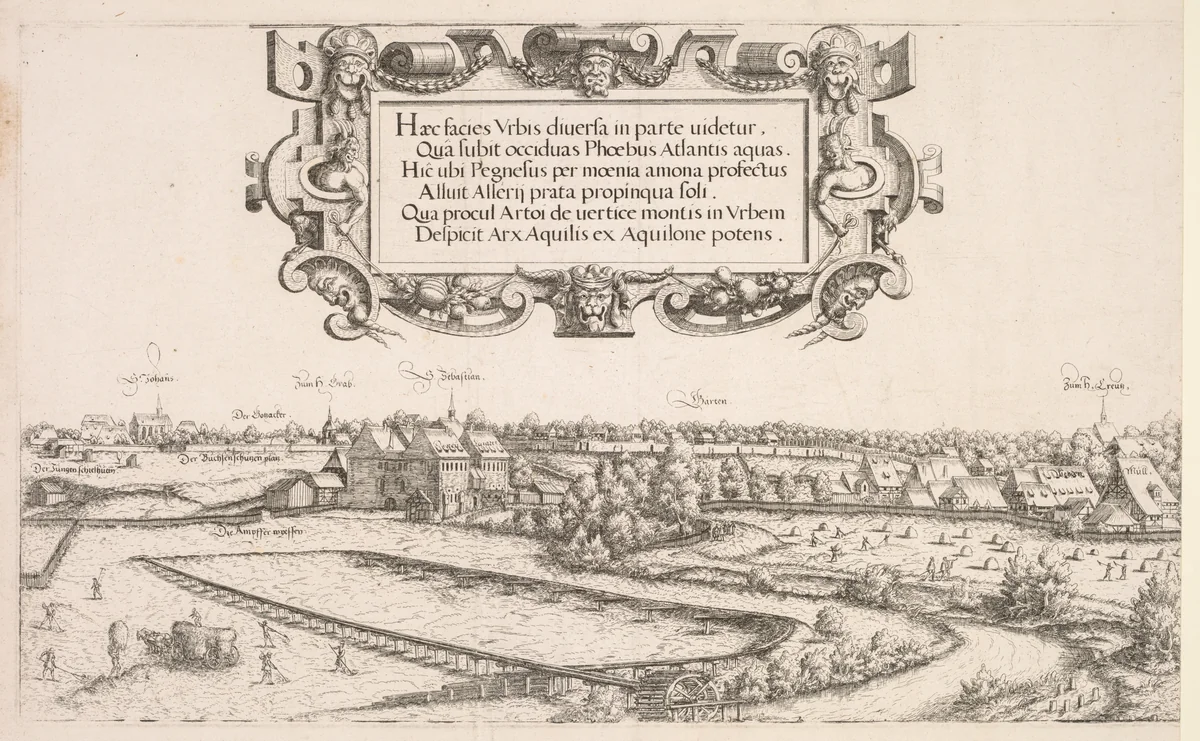 Hæc facies Vrbis diuerſa in parte uidetur,
Quâ ſubit occiduas Phœbus Atlantis aquas.
Hîc ubi Pegneſus per mœnia amona profectus
Alluit Allerij prata propinqua ſoli.
Qua procul Artoi de uertice montis in Vrbem
Deſpicit Arx Aquilis ex Aquilone potens.
S. Johans.
Zum H. Grab.
S. Sebaſtian.
Gärten.
Zum H. Creutz.
Der
Der Büchſenſchützen plan.
Der Jungen
Müll
Die Ampffer wyeſſen